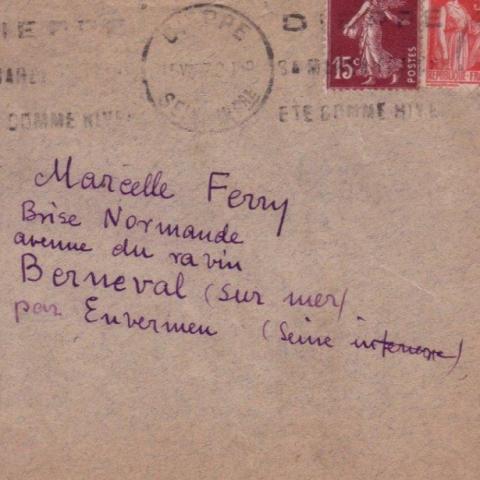 DIEPPE DIEPPE
DIEPPE
SEINE INFRE
15c
POSTES
REPUBLIQUE-FRAN
ETE COMME HIVE
COMME HIVE
Marcelle Ferry
Brise Normande
avenue du ravin
Berneval (sur mer)
par Envermeu (Seine inferieure)